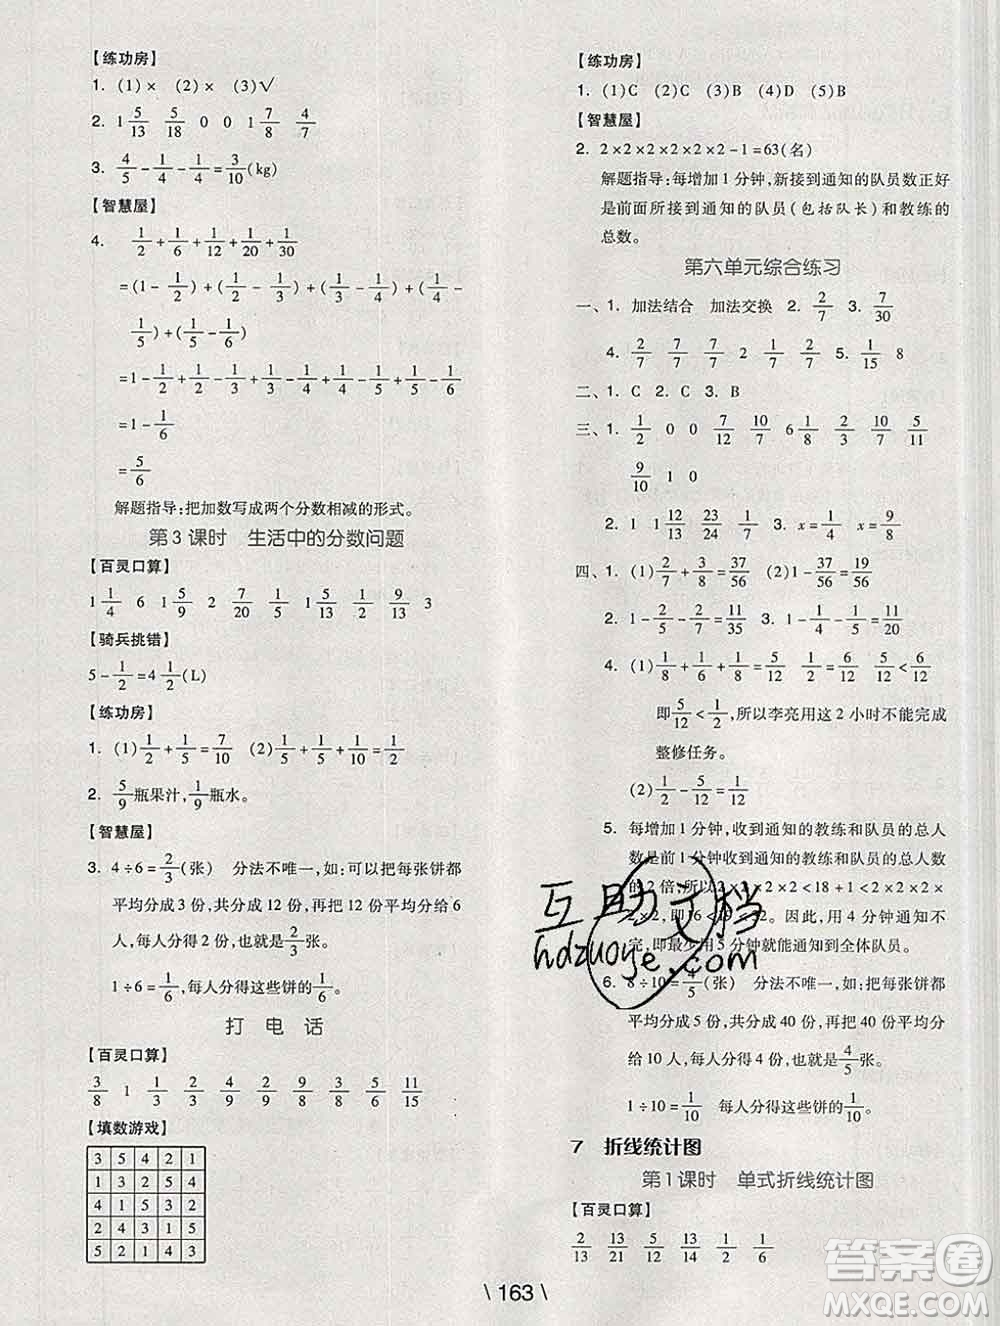 【练功房】
1. (1)× (2)× (3)√
2. 1 5/13 5/18 0 0 1 7/8 4/7
3. 4/5-1/4-1/4=3/10(kg)
【智慧屋】
4. 1/2+1/6+1/12+1/20+1/30
=(1-1/2)+(1/2-1/3)+(1/3-1/4)+(1/4-
1/5)+(1/5-1/6)
=1-1/2+1/2-1/3+1/3-1/4+1/4-1/5+1/5-1/6
=1-1/6
=5/6
解题指导:把加数写成两个分数相减的形式。
第3课时 生活中的分数问题
【百灵口算】
1 1/4 6 1 5/9 2 7/20 1 5/13 4/15 9/13 3
【骑兵挑错】
5-1/2=4 1/2(L)
【练功房】
1. (1)1/2+1/5=7/10 (2)1/5+1/5+1/5=3/5
2. 5/9瓶果汁,1/9瓶水。
【智慧屋】
3. 4÷6=2/3(张) 分法不唯一,如:可以把每张饼都
平均分成3份,共分成12份,再把12份平均分给6
人,每人分得2份,也就是2/3张。
1÷6=1/6,每人分得这些饼的1/6。
打电话
【百灵口算】
3/8 1 1/3 2/3 4/9 2/9 3/5 5/6 11/15
【填数游戏】
3 5 4 2 1
1 2 5 4 3
4 1 3 5 2
2 4 3 1 5
5 2 1 4 3
【练功房】
1. (1)C (2)C (3)B (4)D (5)B
【智慧屋】
2. 2×2×2×2×2×2-1=63(名)
解题指导:每增加1分钟,新接到通知的队员数正好
是前面所接到通知的队员(包括队长)和教练的
总数。
第六单元综合练习
一、1. 加法结合 加法交换 2. 2/7 3. 7/30
4. 2/7 7/7 7/7 2 1/7 7/7 5. 1/15 8
二、1. C 2. C 3. B
三、1. 1/2 0 0 7/12 10/7 6 1/2 3/8 10/9 5/11
9/10 1 0
2. 1 1 1/12 23/24 1 1/2 3. x=4/5 x=9/8
四、1. (1)2/7+3/8=37/56 (2)1-37/56=19/56
2. 1-2/5-2/7=11/35 3. 1-1/4-1/5=11/20
4. (1)1/8+1/6+1/8=5/12 1/2=6/12 5/12<6/12
即5/12<1/2,所以李亮用这2小时不能完成
整修任务。
(2)1/2-5/12=1/12
5. 每增加1分钟,收到通知的教练和队员的总人
数是前1分钟收到通知的教练和队员的总人数
的2倍,所以2×2×2×2<18+1<2×2×2×
2×2,即16<19<32。因此,用4分钟通知不
完,即最少用5分钟就能通知到全体队员。
6. 8÷10=4/5(张) 分法不唯一,如:把每张饼都
平均分成5份,共分成40份,再把40份平均分
给10人,每人分得4份,也就是4/5张。
1÷10=1/10 每人分得这些饼的1/10。
7 折线统计图
第1课时 单式折线统计图
【百灵口算】
2/13 13/21 5/12 13/14 1/2 1/6
\163\
互助文档
hdzuoye.com
答案圈
MXQE.COM